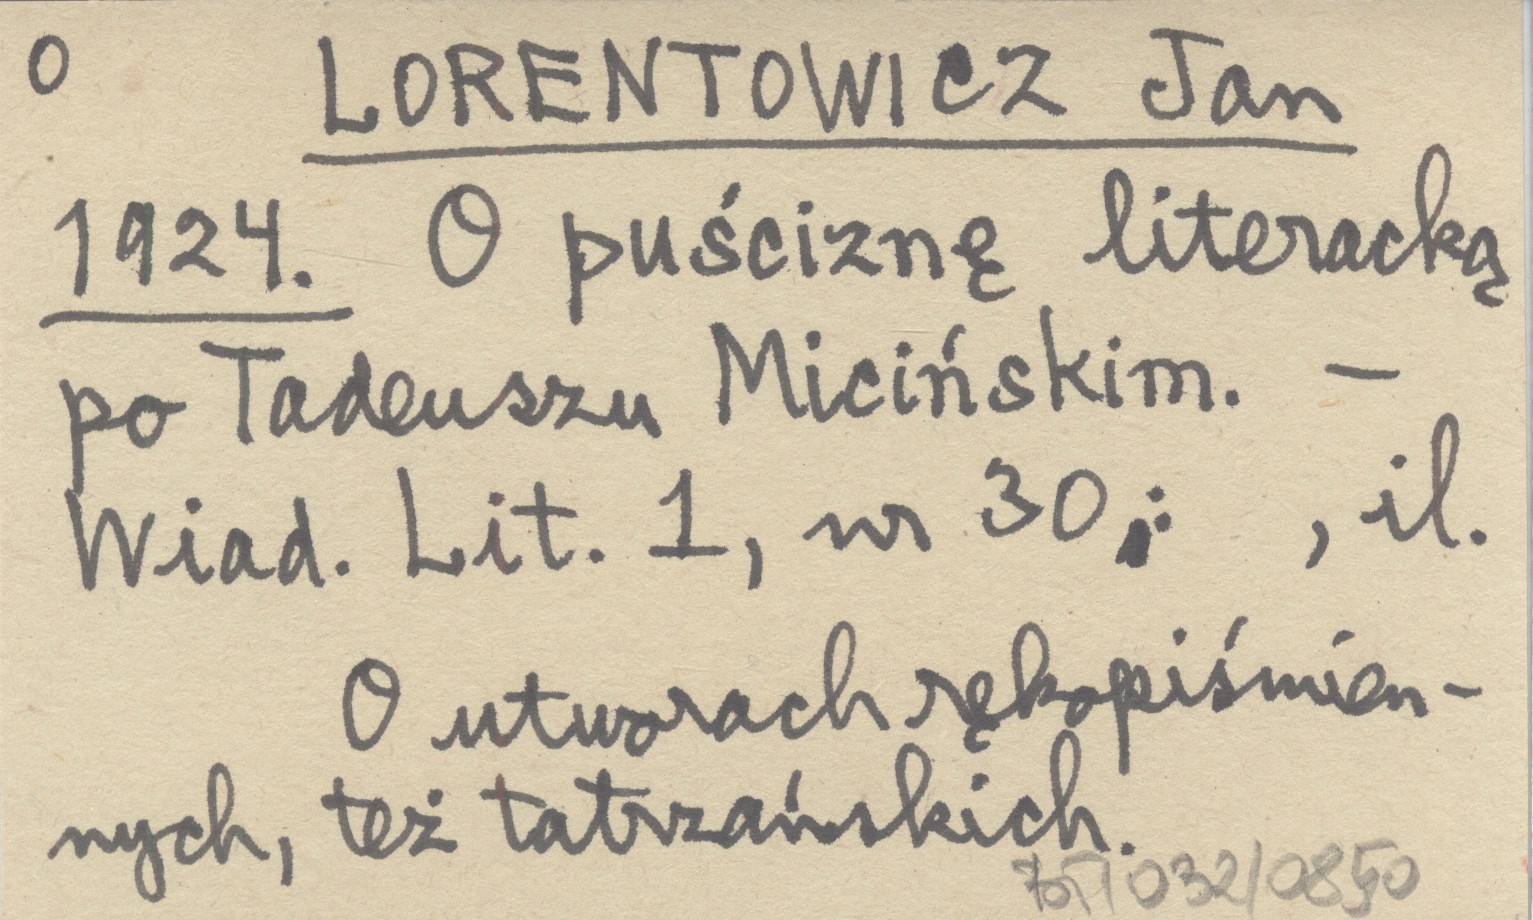 O LORENTOWICZ Jan
1924. O puściznę literacką
po Tadeuszu Micińskim. –
Wiad. Lit. 1, nr 30, : , il.
O utworach rękopiśmien-
nych, też tatrzańskich.
032/0850